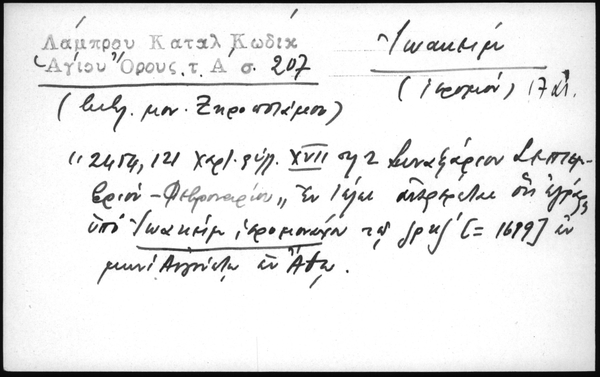 Λάμπρου Καταλ Κωδικ
Ἁγίου Ὄρους τ. Α σ. 207
Ἰωακείμ
(ἱερομόν) 17 αἰ.
(βιβλ. μον. Ξηροποτάμου)
„ 2454, 121 χαρτ. φύλ. XVII Συναξάριον Σεπτεμ-
βρίου - Φεβρουαρίου „ Ἐν τέλει ὅτι ἐγράφη
ὑπὸ Ἰωακείμ ἱερομονάχου τῷ ζρϟζ΄ [= 1689] ἐν
μηνὶ Αὐγούστῳ ἐν Ἄθῳ.